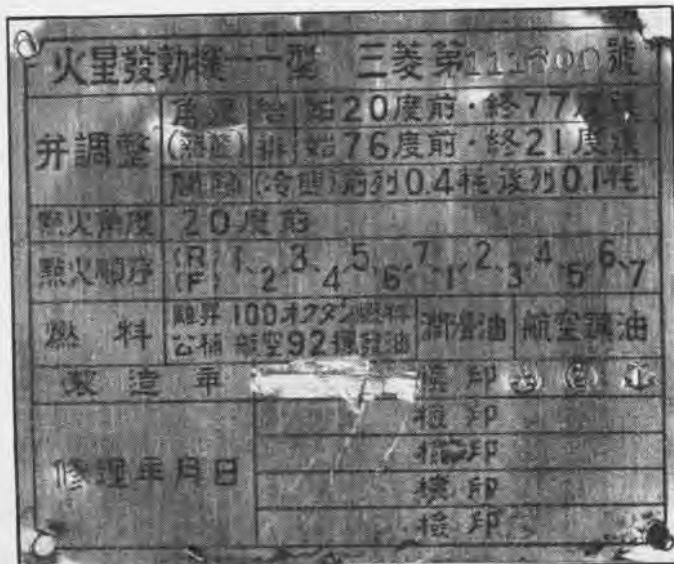 火星發動機一一型 三菱第111600號
弁調整
始20度前・終77度後
(熱態) 排 始76度前・終21度後
間隙 (冷態)前列0.4粍後列0.1粍
點火角度 20度前
點火順序 (R) 1 3 5 7 2 4 6
(F) 2 4 6 1 3 5 7
燃料
離昇 100オクタン燃料
公稱 航空92揮發油
潤滑油 航空鑛油
製造年 檢印
修理年月日
檢印
檢印
檢印
檢印